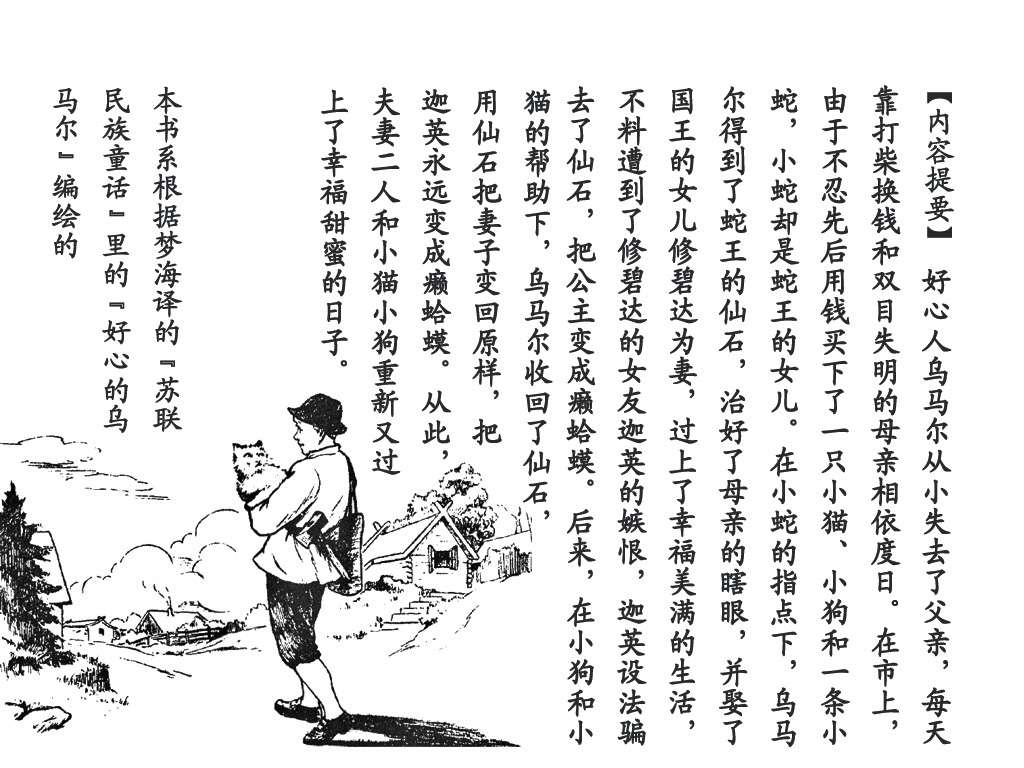 【内容提要】 好心人乌马尔从小失去了父亲，每天
靠打柴换钱和双目失明的母亲相依度日。在市上，
由于不忍先后用钱买下了一只小猫、小狗和一条小
蛇，小蛇却是蛇王的女儿。在小蛇的指点下，乌马
尔得到了蛇王的仙石，治好了母亲的瞎眼，并娶了
国王的女儿修碧达为妻，过上了幸福美满的生活，
不料遭到了修碧达的女友迦英的嫉恨，迦英设法骗
去了仙石，把公主变成癞蛤蟆。后来，在小狗和小
猫的帮助下，乌马尔收回了仙石，
用仙石把妻子变回原样，把
迦英永远变成癞蛤蟆。从此，
夫妻二人和小猫小狗重新又过
上了幸福甜蜜的日子。
本书系根据梦海译的『苏联
民族童话』里的『好心的乌
马尔』编绘的